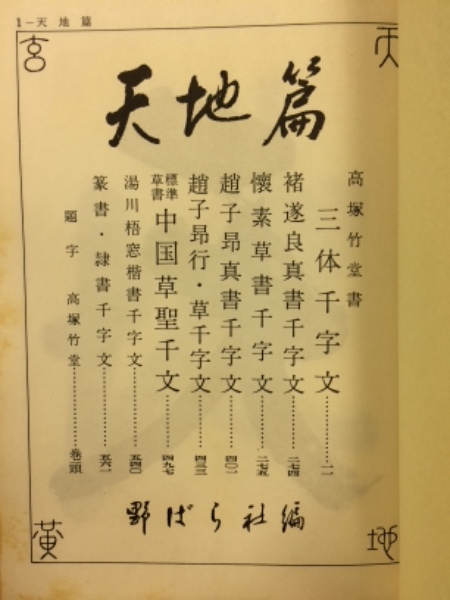 1—天地篇
天
地
玄
黄
天地篇
高塚竹堂書
三体千字文…………
褚遂良真書千字文…………二七四
懷素草書千字文…………二七五
趙子昂真書千字文…………四〇一
趙子昂行・草千字文…………
標準草書 中国草聖千文…………四九七
湯川梧窓楷書千字文…………五四〇
篆書・隷書千字文…………五六一
題字 高塚竹堂…………巻頭
野ばら社編